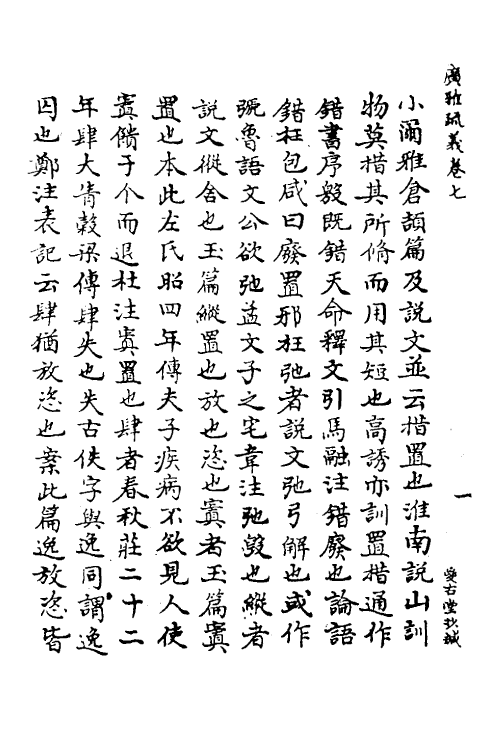 廣雅疏義卷七
小爾雅倉頡篇及說文並云措置也淮南說山訓
物莫措其所脩而用其短也高誘亦訓置措通作
錯書序殷既錯天命釋文引馬融注錯廢也論語
錯枉包咸曰廢置邪枉弛者說文弛弓解也或作
㢮魯語文公欲弛孟文子之宅韋注弛毀也縱者
說文縱舍也玉篇縱置也放也恣也寘者玉篇寘
置也本此左氏昭四年傳夫子疾病不欲見人使
寘饋于个而退杜注寘置也肆者春秋莊二十二
年肆大眚穀梁傳肆失也失古佚字與逸同謂逸
囚也鄭注表記云肆猶放恣也案此篇逸放恣皆
一
愛古堂抄藏